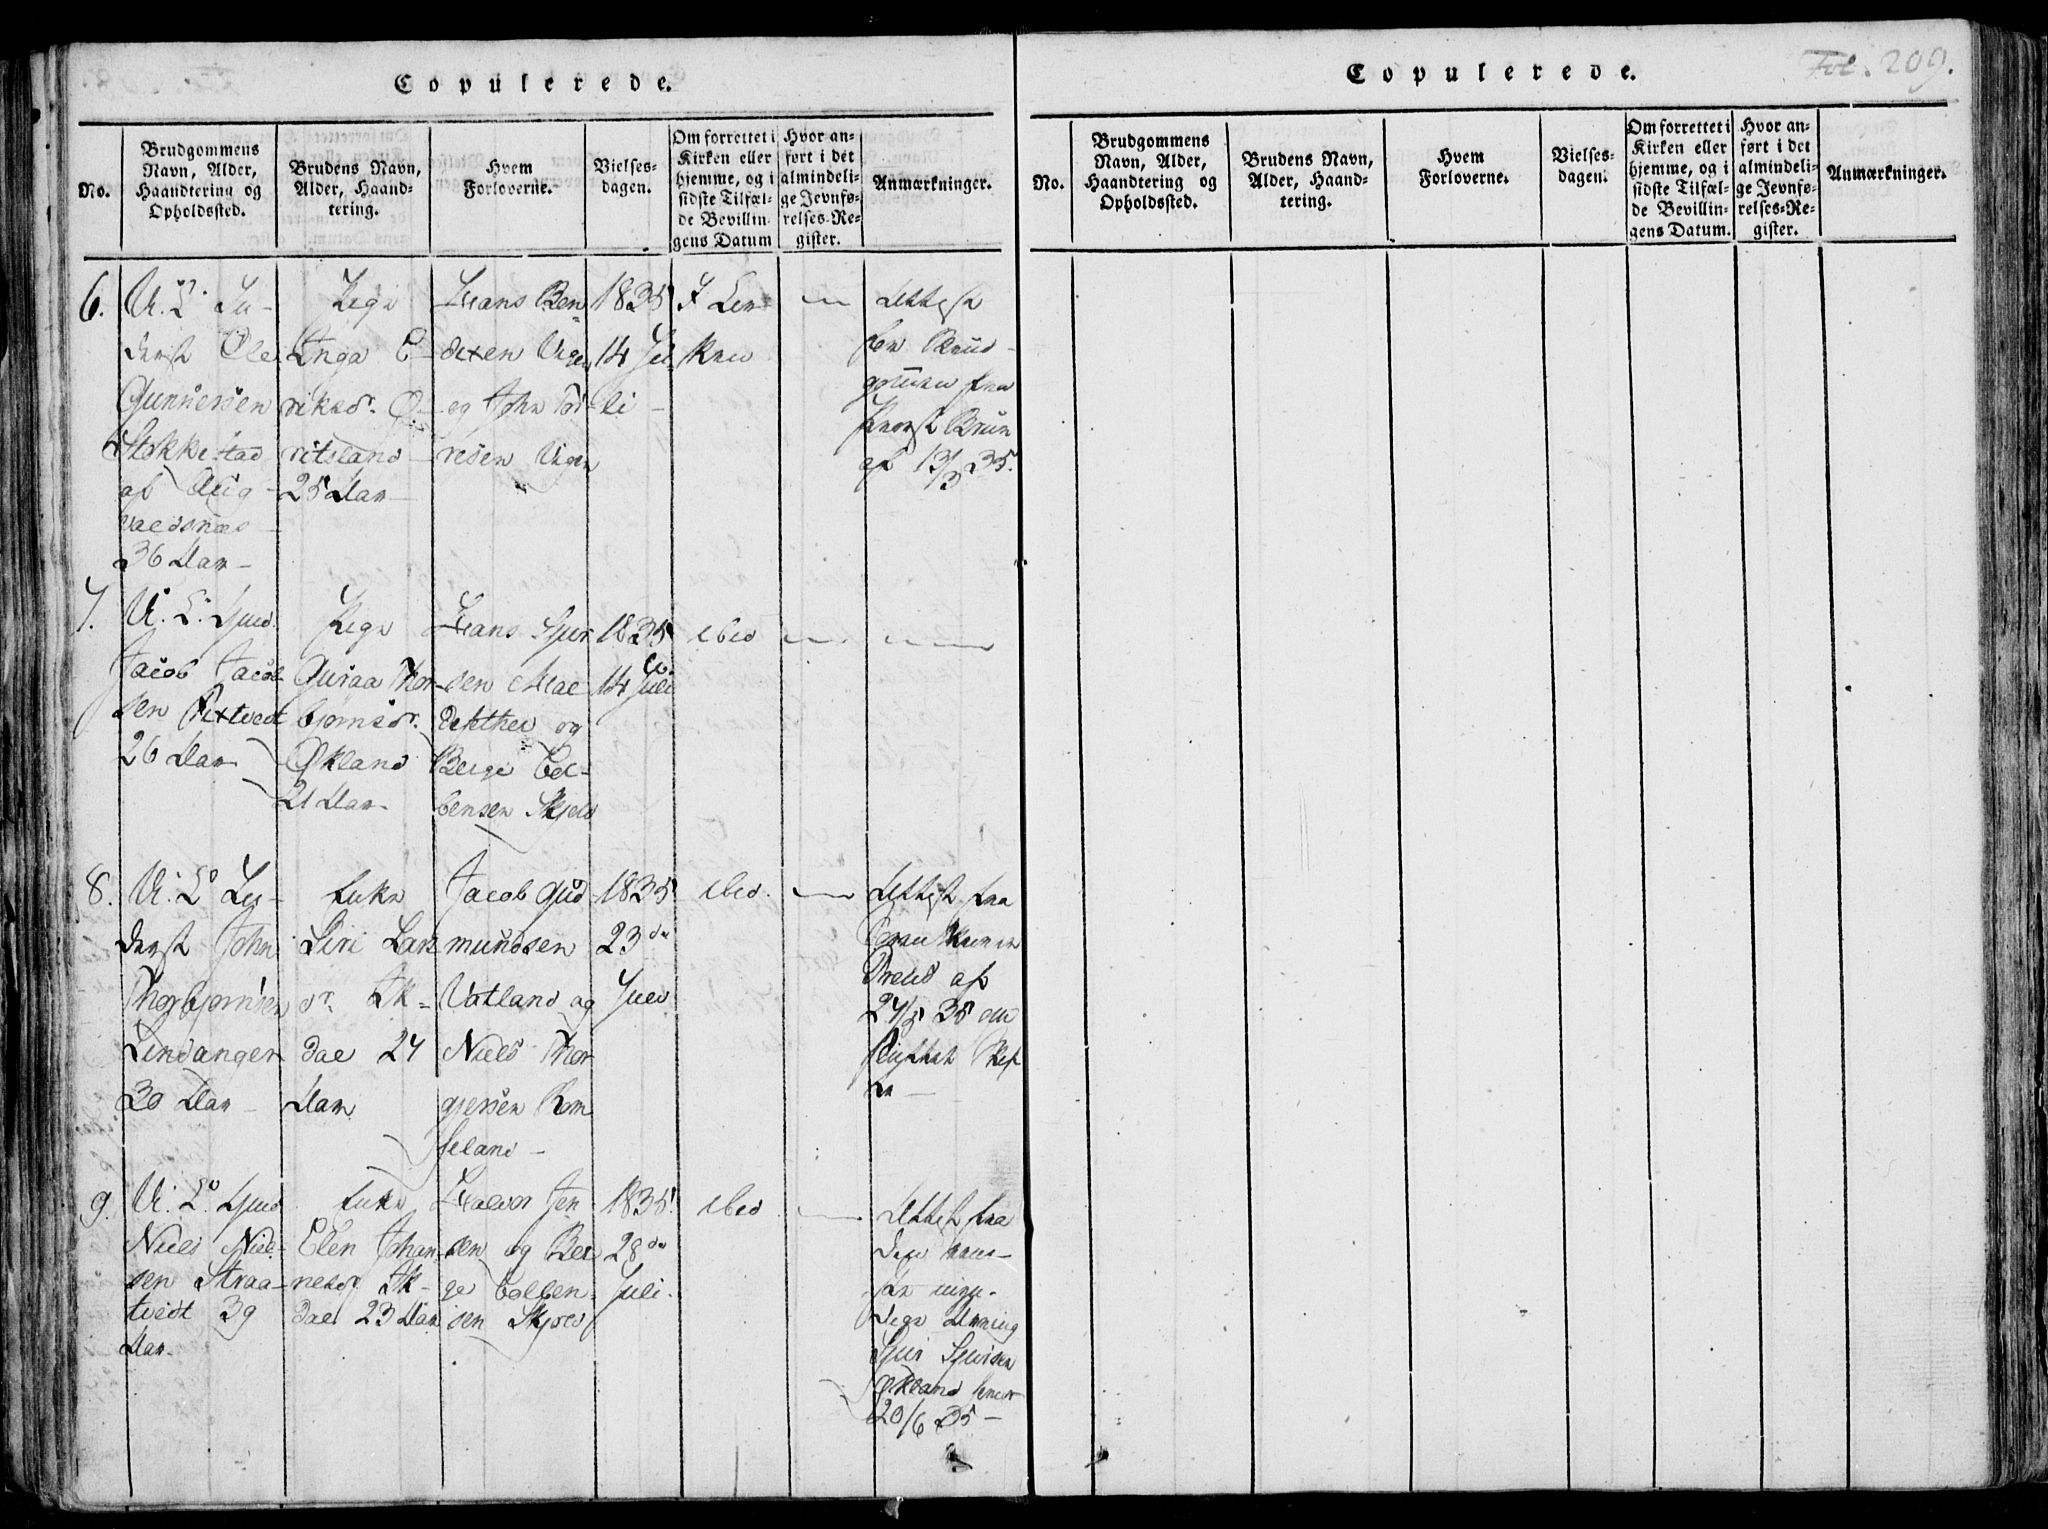 Copulerede.
No.
Brudgommens
Navn, Alder,
Haandtering og
Opholdssted.
Brudens Navn,
Alder, Haand-
tering.
Hvem
Forloverne.
Vielses-
dagen.
Om forrettet i
Kirken eller
hjemme, og i
sidste Tilfæl-
de Bevillin-
gens Datum
Hvor an-
ført i det
almindeli-
ge Jevnfø-
relses-Re-
gister.
Anmærkninger.
6.
U. C.
derst Ole
Gunnersen
Stokkestad
af Aug-
valdsnæs
36 Aar
Pige
Inga E-
riksdr. Ø-
ritsland
25 Aar
Hans Ben-
dixen
og John Tor-
resen
1835
14 Ju-
li
I Kir-
ken
Attest
for Brud-
gommen fra
Provst Bruun
af 13/3 35.
7.
U. C.
Jacob Jacob-
sen Pixtvedt
26 Aar
Pige
Guraa Thor-
bjørnsdr.
Økland
21 Aar
Hans
sen
og
Berge Col-
bensen Skjold
1835
14 Juli
ibid
8.
U. C.
derst John
Thorbjørnsen
Lindanger
30 Aar
Enke
Siri Lars
dr. Ik-
dal 24
Aar
Jacob Gud-
mundsen
Vatland og
Niels Thor
gjersen Rom
seland
1835
23de
Juli
ibid.
Attest fra
af
24/5 35 om
9.
U. C.
Niels Niel-
sen Straa-
tvedt 39
Aar
Enke
Elen Johan-
nesdr Ik-
dal 23 Aar
Halvor Jen
sen og Ber
ge Colben-
sen Skjold
1835
28de
Juli.
ibid
Attest fra
Sjur Sjursen
Økland
20/6 35
Copulerede.
Fol. 209.
No.
Brudgommens
Navn, Alder,
Haandtering og
Opholdssted.
Brudens Navn,
Alder, Haand-
tering.
Hvem
Forloverne.
Vielses-
dagen.
Om forrettet i
Kirken eller
hjemme, og i
sidste Tilfæl-
de Bevillin-
gens Datum.
Hvor an-
ført i det
almindeli-
ge Jevnfø-
relses-Re-
gister.
Anmærkninger.